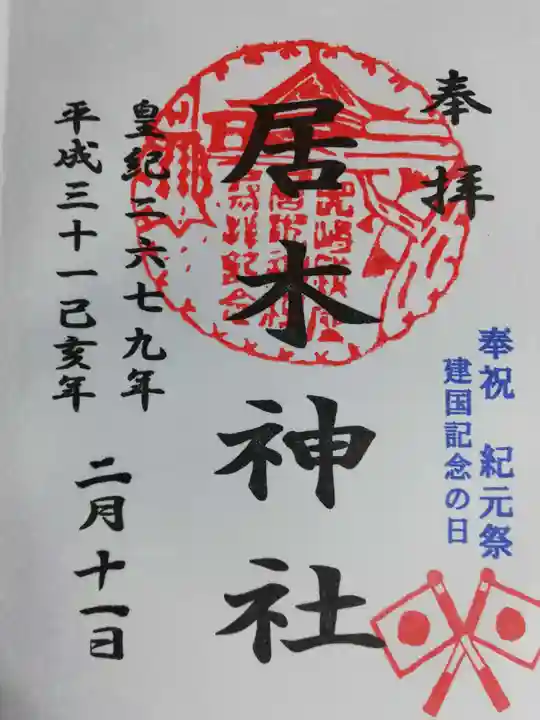 奉拝
奉祝 紀元祭
建国記念の日
居木神社
皇紀二六七九年
平成三十一己亥年
二月十一日